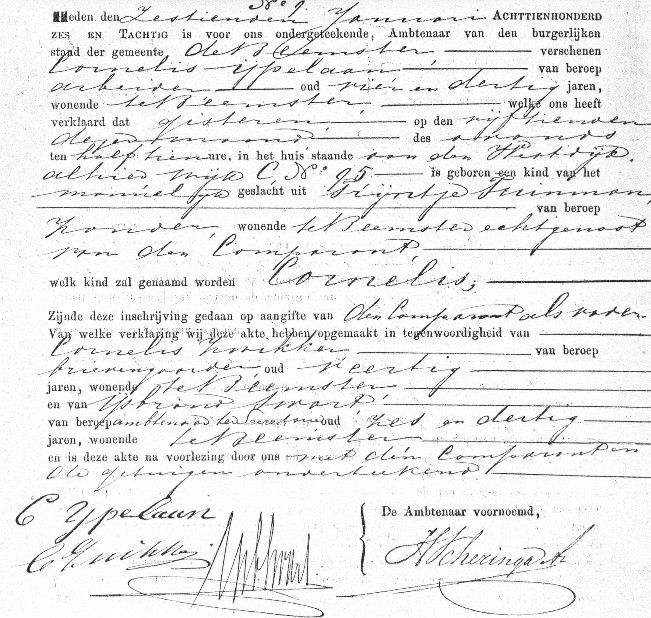 No. 9.
Heden den Zestienden Januari ACHTTIENHONDERD
ZES EN TACHTIG is voor ons ondergeteekende, Ambtenaar van den burgerlijken
stand der gemeente de Beemster verschenen
Cornelis Ypelaan, van beroep
arbeider oud vier en dertig jaren,
wonende te Beemster, welke ons heeft
verklaard dat gisteren, op den vijftienden
dezer maand des avonds
ten half tien ure, in het huis staande aan den Westdijk,
alhier wijk C No. 95 is geboren een kind van het
mannelijk geslacht uit Trijntje Tuinman,
van beroep
zonder, wonende te Beemster echtgenoot
van den Comparant,
welk kind zal genaamd worden Cornelis,
Zijnde deze inschrijving gedaan op aangifte van den Comparant als vader
Van welke verklaring wij deze akte hebben opgemaakt in tegenwoordigheid van
Cornelis Kwikker van beroep
brievengaarder, oud veertig
jaren, wonende te Beemster
en van IJsbrand Swart,
van beroep ambtenaar ter secretarie oud zes en dertig
jaren, wonende te Beemster
en is deze akte na voorlezing door ons met den Comparant en
de getuigen onderteekend
C Ypelaan
De Ambtenaar voornoemd,
C Kwikker
HScheringa